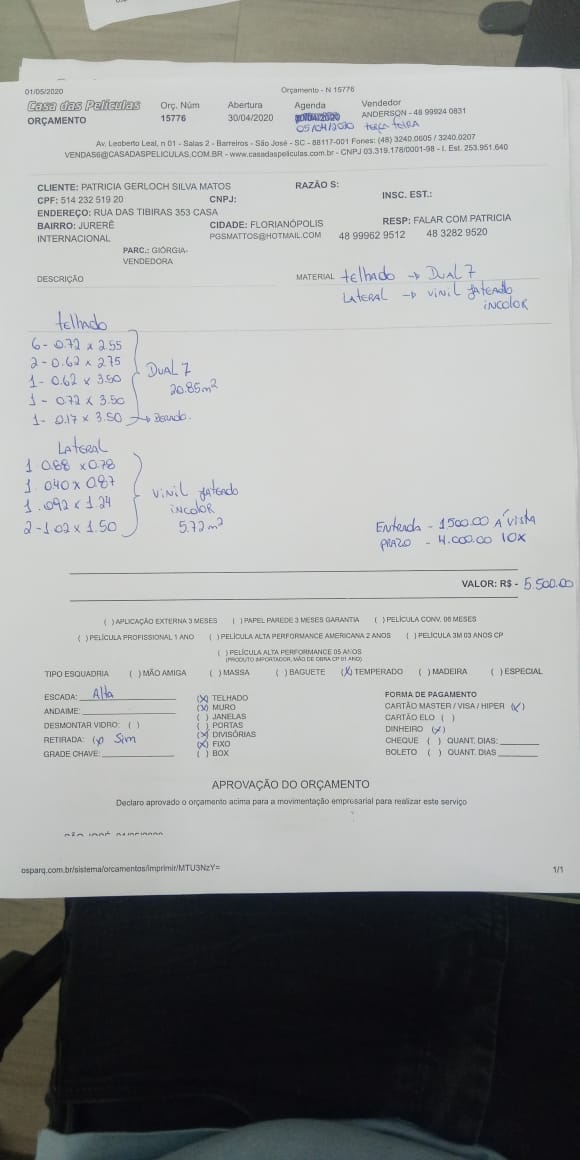 01/05/2020 Orçamento - N 15776
Casa das Películas Orç. Núm Abertura Agenda Vendedor
ORÇAMENTO 15776 30/04/2020 05/04/2020 terça feira ANDERSON - 48 99924 0831
Av. Leoberto Leal, n 01 - Salas 2 - Barreiros - São José - SC - 88117-001 Fones: (48) 3240.0605 / 3240.0207
VENDAS6@CASADASPELICULAS.COM.BR - www.casadaspeliculas.com.br - CNPJ 03.319.178/0001-98 - I. Est. 253.951.640
CLIENTE: PATRICIA GERLOCH SILVA MATOS RAZÃO S:
CPF: 514 232 519 20 CNPJ: INSC. EST.:
ENDEREÇO: RUA DAS TIBIRAS 353 CASA
BAIRRO: JURERÊ INTERNACIONAL CIDADE: FLORIANÓPOLIS RESP: FALAR COM PATRICIA
PGSMATTOS@HOTMAIL.COM 48 99962 9512 48 3282 9520
PARC.: GIÓRGIA- VENDEDORA
DESCRIÇÃO MATERIAL telhado → Dual 7
Lateral → vinil jateado
incolor
telhado
6- 0.72 x 2.55
2- 0.62 x 2.75
1- 0.62 x 3.50
1- 0.72 x 3.50
1- 0.17 x 3.50
Dual 7
20.85m²
Lateral
1 0.68 x 0.78
1. 040 x 0.87
1. 092 x 1.24
2-1.02 x 1.50
vinil jateado
incolor
5.72m²
Entrada - 1500.00 Á vista
Prazo - 4.000.00 10x
VALOR: R$ - 5.500.00
( ) APLICAÇÃO EXTERNA 3 MESES ( ) PAPEL PAREDE 3 MESES GARANTIA ( ) PELÍCULA CONV. 06 MESES
( ) PELÍCULA PROFISSIONAL 1 ANO ( ) PELÍCULA ALTA PERFORMANCE AMERICANA 2 ANOS ( ) PELÍCULA 3M 03 ANOS CP
( ) PELÍCULA ALTA PERFORMANCE 05 ANOS
(PRODUTO IMPORTADOR, MÃO DE OBRA CP 01 ANO)
TIPO ESQUADRIA ( ) MÃO AMIGA ( ) MASSA ( ) BAGUETE (X) TEMPERADO ( ) MADEIRA ( ) ESPECIAL
ESCADA: Alta
ANDAIME:
DESMONTAR VIDRO: ( )
RETIRADA: (x) Sim
GRADE CHAVE:
(X) TELHADO
(X) MURO
( ) JANELAS
( ) PORTAS
(X) DIVISÓRIAS
(X) FIXO
( ) BOX
FORMA DE PAGAMENTO
CARTÃO MASTER / VISA / HIPER (x)
CARTÃO ELO ( )
DINHEIRO (x)
CHEQUE ( ) QUANT. DIAS:
BOLETO ( ) QUANT. DIAS
APROVAÇÃO DO ORÇAMENTO
Declaro aprovado o orçamento acima para a movimentação empresarial para realizar este serviço
osparq.com.br/sistema/orcamentos/imprimir/MTU3NzY= 1/1